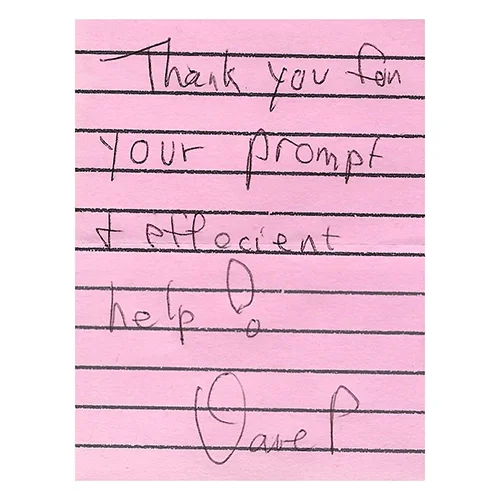 Thank you for
your prompt
+ effocient
help!
Dave P